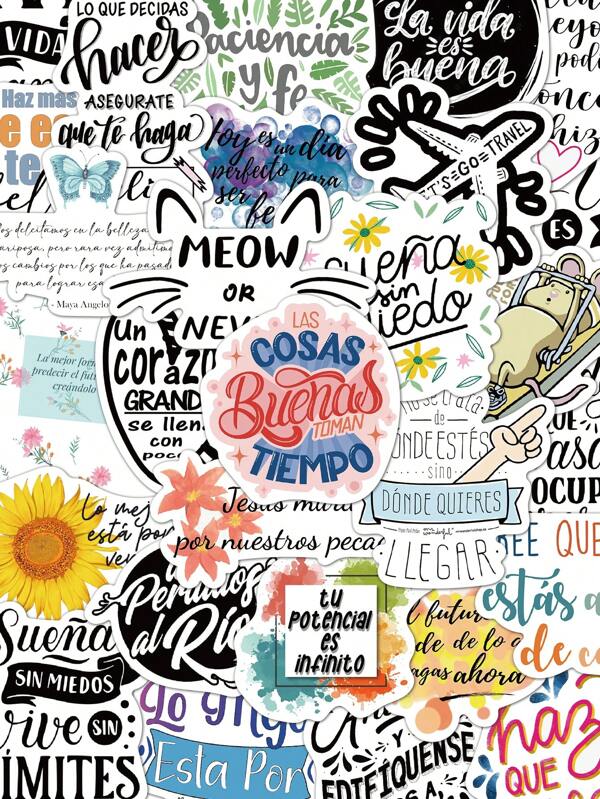 VIDA
LO QUE DECIDAS
hacer
ASEGURATE
que te haga
Paciencia
y fe
La vida
es
buena
Haz más
Hoy es un día
perfecto para
ser
LET'S GO TRAVEL
ES
Nos deleitamos en la belleza
mariposa, pero rara vez admitimos
los cambios por los que ha pasado
para lograr esa
- Maya Angelou
MEOW
OR
Sueña
sin
miedo
La mejor forma
predecir el futuro
creándolo
Un
corazón
GRANDE
se llena
con
poco
LAS
COSAS
Buenas
TOMAN
TIEMPO
no se trata
de
DONDE ESTÉS
sino
DÓNDE QUIERES
LLEGAR
Lo mejor
está por
ver
Jesús murió
por nuestros pecados
Perdidos
al Río
tu
potencial
es
infinito
El futuro
de de lo
hagas ahora
QUE
estás a
de co
Sueña
SIN MIEDOS
vive SIN
LÍMITES
Lo Mejor
Esta Por
Y
EDIFÍQUENSE
haz
QUE